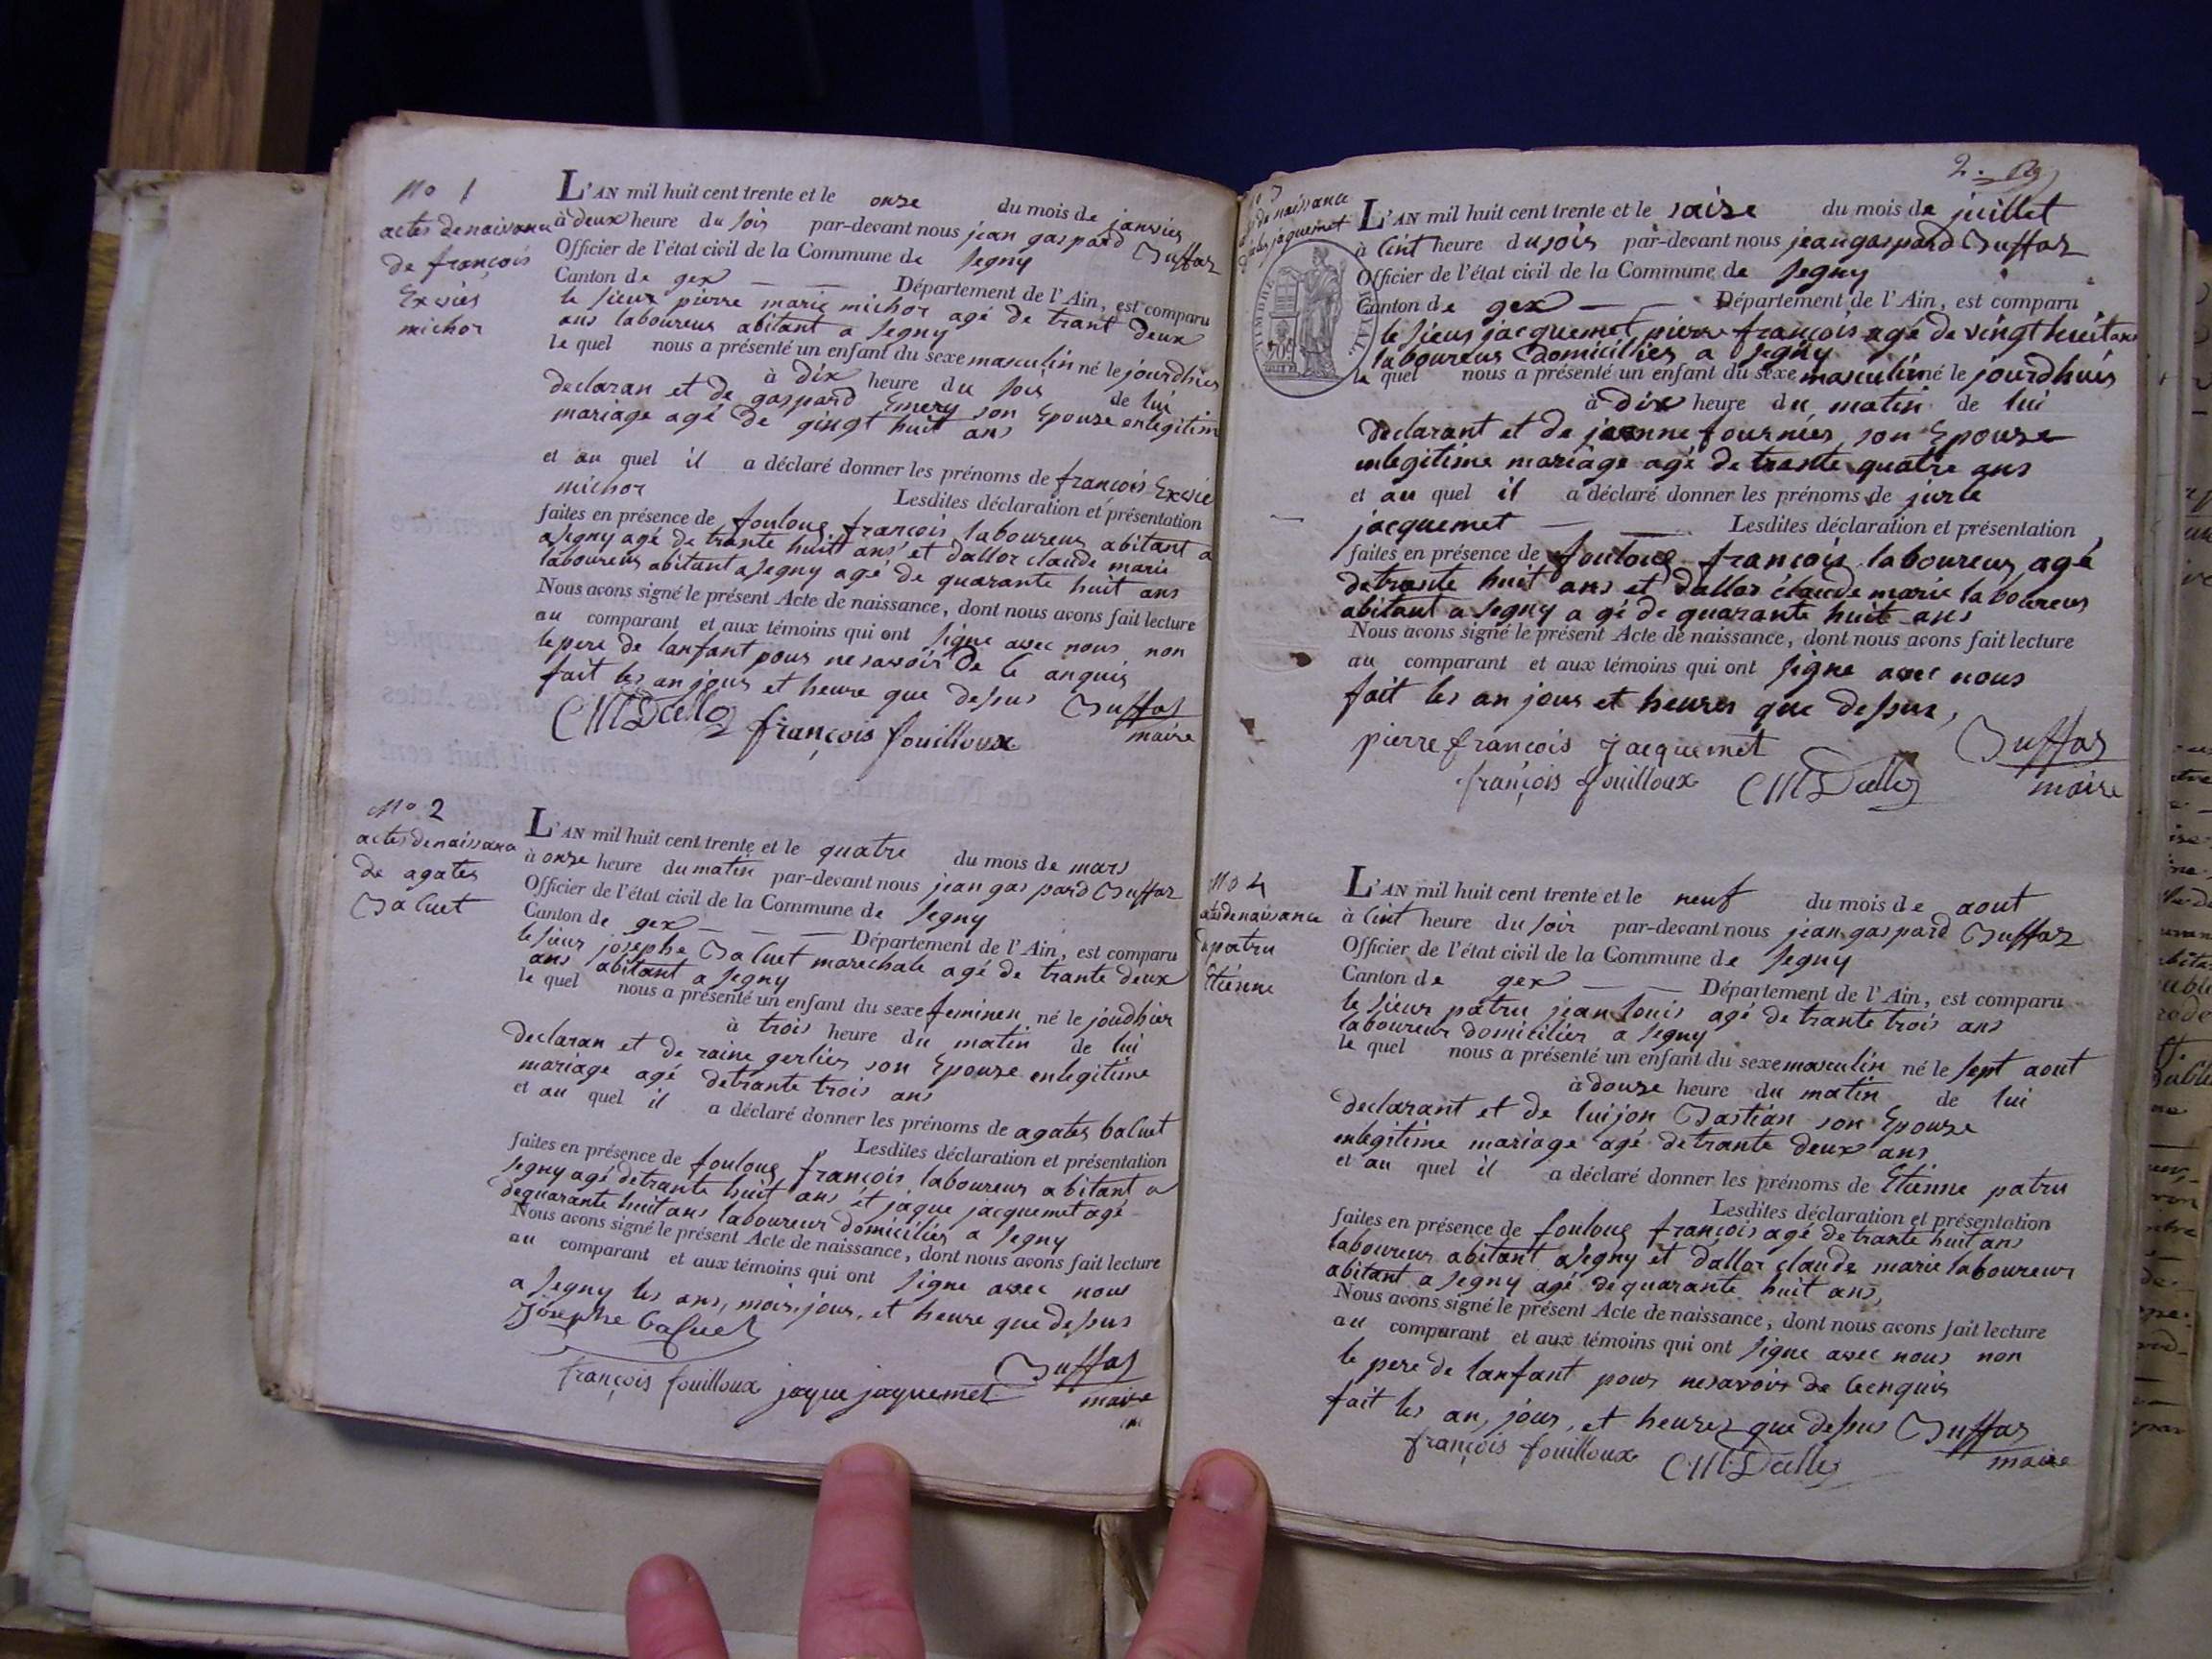 No 1
actes de naissance
de françois
Exvier
michor
L'AN mil huit cent trente et le onze du mois de janvier
à deux heure du soir par-devant nous jean gaspard Buffaz
Officier de l'état civil de la Commune de Segny
Canton de gex Département de l'Ain, est comparu
le sieur pierre marie michor agé de trant deux
ans laboureur abitant a Segny
le quel nous a présenté un enfant du sexe masculin né le jourdhuis
à dix heure du soir de lui
declaran et de gaspard Emery son Epouse en legitim
mariage agé de gingt huit ans
et au quel il a déclaré donner les prénoms de françois Exvie
michor Lesdites déclaration et présentation
faites en présence de fouloug françois laboureur abitant a
a Segny agé de trante huitt ans et dallor claude marie
laboureur abitant a Segny agé de quarante huit ans
Nous avons signé le présent Acte de naissance, dont nous avons fait lecture
au comparant et aux témoins qui ont signe avec nous non
le pere de lanfant pour ne savoir de ce anquis
fait les an jour et heure que dessus Buffaz
CMDalloz françois fouilloux maire
No 2
actes de naissance
de agates
Baluet
L'AN mil huit cent trente et le quatre du mois de mars
à onze heure du matin par-devant nous jean gaspard Buffaz
Officier de l'état civil de la Commune de Segny
Canton de gex Département de l'Ain, est comparu
le sieur josephe Baluet marechale agé de trante deux
ans abitant a Segny
le quel nous a présenté un enfant du sexe feminen né le joudhier
à trois heure du matin de lui
declaran et de raine gerlier son Epouse en legitime
mariage agé de trante trois ans
et au quel il a déclaré donner les prénoms de agates baluet
Lesdites déclaration et présentation
faites en présence de fouloug françois laboureur abitant a
Segny agé de trante huit ans et jaque jacquemet agé
de quarante huit ans laboureur domicilier a Segny
Nous avons signé le présent Acte de naissance, dont nous avons fait lecture
au comparant et aux témoins qui ont signe avec nous
a Segny les ans, mois, jour, et heure que dessus
Josephe baluet
françois fouilloux jaque jaquemet Buffaz
maire
2.
3
de naissance
jacquemet
TIMBRE ROYAL
L'AN mil huit cent trente et le saize du mois de juillet
à cint heure du soir par-devant nous jean gaspard Buffaz
Officier de l'état civil de la Commune de Segny
Canton de gex Département de l'Ain, est comparu
le sieur jacquemet pierre françois agé de vingt huit ans
laboureur domicillier a Segny
le quel nous a présenté un enfant du sexe masculin né le jourdhuis
à dix heure du matin de lui
declarant et de jeanne fournier son Epouse
en legitime mariage agé de trante quatre ans
et au quel il a déclaré donner les prénoms de jurle
jacquemet Lesdites déclaration et présentation
faites en présence de fouloug françois laboureur agé
de trante huit ans et dallor claude marie laboureur
abitant a Segny a gé de quarante huit ans
Nous avons signé le présent Acte de naissance, dont nous avons fait lecture
au comparant et aux témoins qui ont signe avec nous
fait les an jour et heures que dessus,
pierre francois jacquemet Buffaz
françois fouilloux CMDalloz maire
No 4
acte de naissance
de patru
Etienne
L'AN mil huit cent trente et le neuf du mois de aout
à cint heure du soir par-devant nous jean gaspard Buffaz
Officier de l'état civil de la Commune de Segny
Canton de gex Département de l'Ain, est comparu
le sieur patru jean louis agé de trante trois ans
laboureur domicilier a Segny
le quel nous a présenté un enfant du sexe masculin né le sept aout
à douze heure du matin de lui
declarant et de luijon Bastian son Epouse
en legitime mariage agé de trante deux ans
et au quel il a déclaré donner les prénoms de Etienne patru
Lesdites déclaration et présentation
faites en présence de fouloug françois agé de trante huit ans
laboureur abitant a Segny et dallor claude marie laboureur
abitant a Segny agé de quarante huit ans,
Nous avons signé le présent Acte de naissance, dont nous avons fait lecture
au comparant et aux témoins qui ont signe avec nous non
le pere de lanfant pour ne savoir de ce enquis
fait les an, jour, et heures que dessus Buffaz
françois fouilloux CMDalloz maire